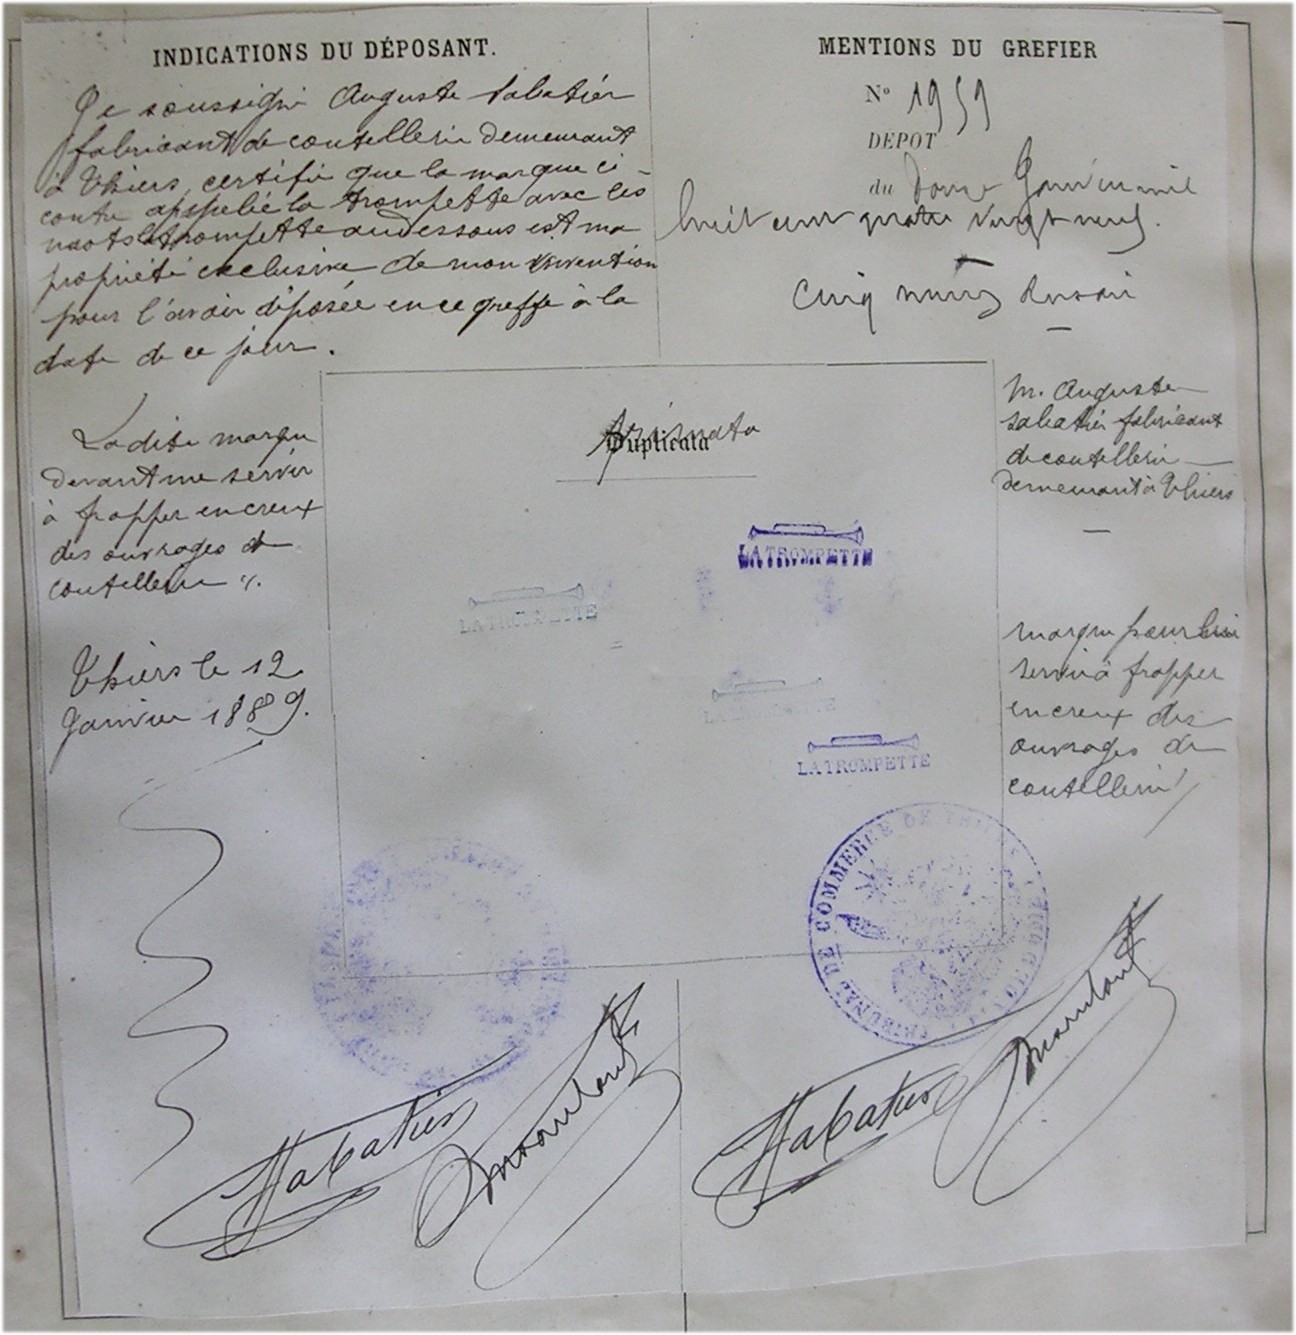 INDICATIONS DU DÉPOSANT.
Je soussigné Auguste Sabatier
fabricant de coutellerie demeurant
à Thiers, certifie que la marque ci-
contre appelée la trompette avec les
mots la trompette au dessous est ma
propriété exclusive de mon invention
pour l'avoir déposée en ce greffe à la
date de ce jour.
Ladite marque
devant me servir
à frapper en creux
des ouvrages de
coutellerie
Thiers le 12
Janvier 1889.
MENTIONS DU GREFIER
N° 1959
DEPOT
du Douze Janvier mil
huit cent quatre vingt neuf.
Cinq heures du soir
M. Auguste
Sabatier fabricant
de coutellerie
demeurant à Thiers
marque pour lui
servir à frapper
en creux des
ouvrages de
coutellerie
Duplicata
LA TROMPETTE
LA TROMPETTE
LA TROMPETTE
LA TROMPETTE
TRIBUNAL DE COMMERCE DE THIERS
Sabatier
Sabatier